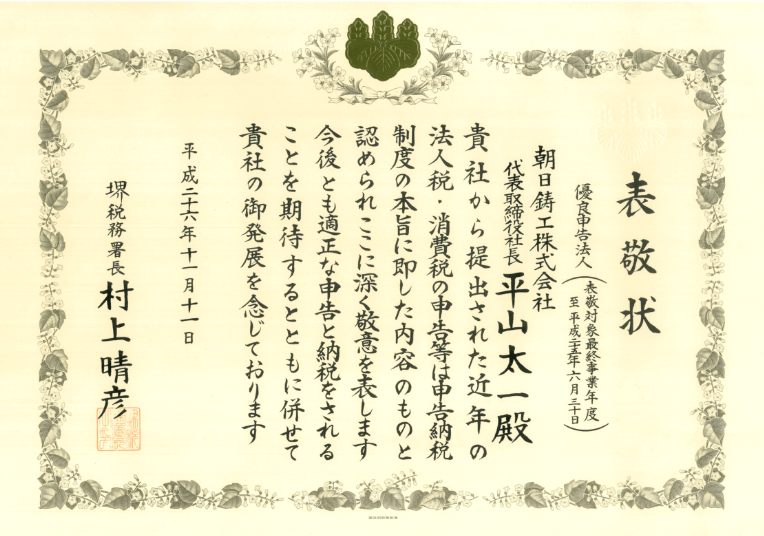 表敬状
優良申告法人
(表敬対象最終事業年度
至平成二十五年六月三十日)
朝日鋳工株式会社
代表取締役社長 平山太一殿
貴社から提出された近年の
法人税・消費税の申告等は申告納税
制度の本旨に即した内容のものと
認められここに深く敬意を表します
今後とも適正な申告と納税をされる
ことを期待するとともに併せて
貴社の御発展を念じております
平成二十六年十一月十一日
堺税務署長 村上晴彦